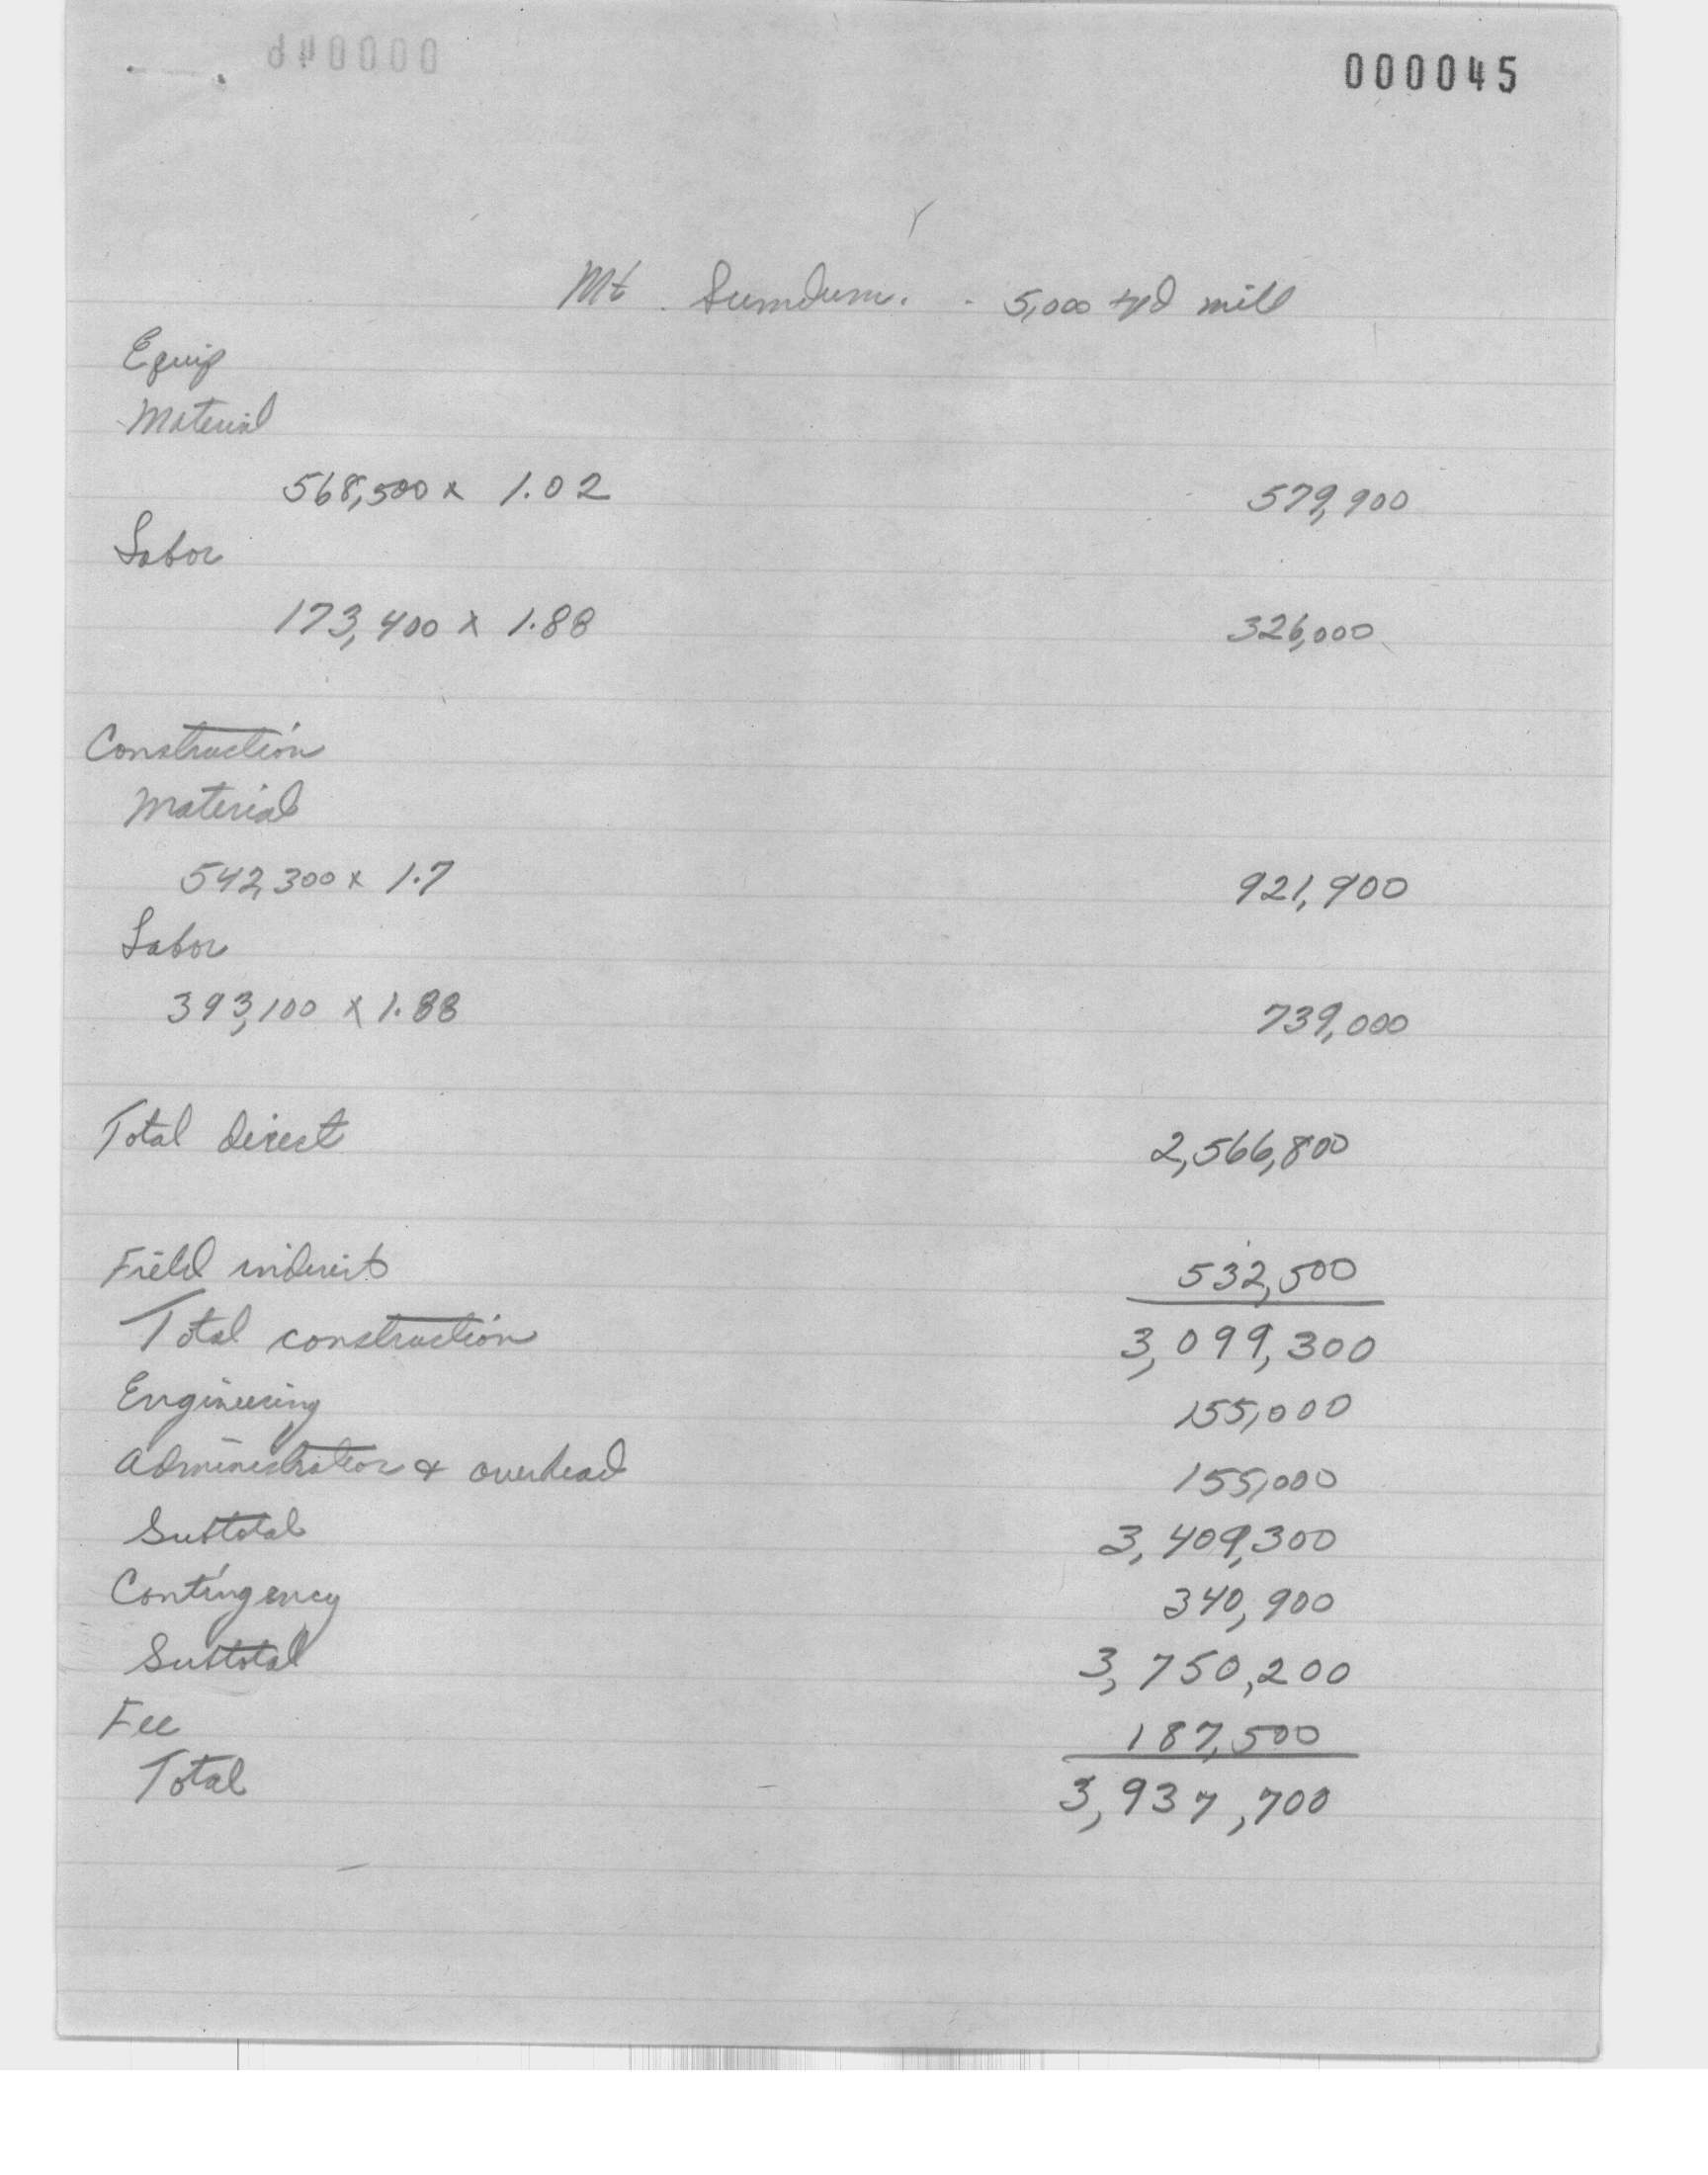 000045
Mt. Sumdum. - 5,000 tpd mill
Equip
Material
568,500 x 1.02 579,900
Labor
173,400 x 1.88 326,000
Construction
Material
542,300 x 1.7 921,900
Labor
393,100 x 1.88 739,000
Total direct 2,566,800
Field indirects 532,500
Total construction 3,099,300
Engineering 155,000
Administration & overhead 155,000
Subtotal 3,409,300
Contingency 340,900
Subtotal 3,750,200
Fee 187,500
Total 3,937,700